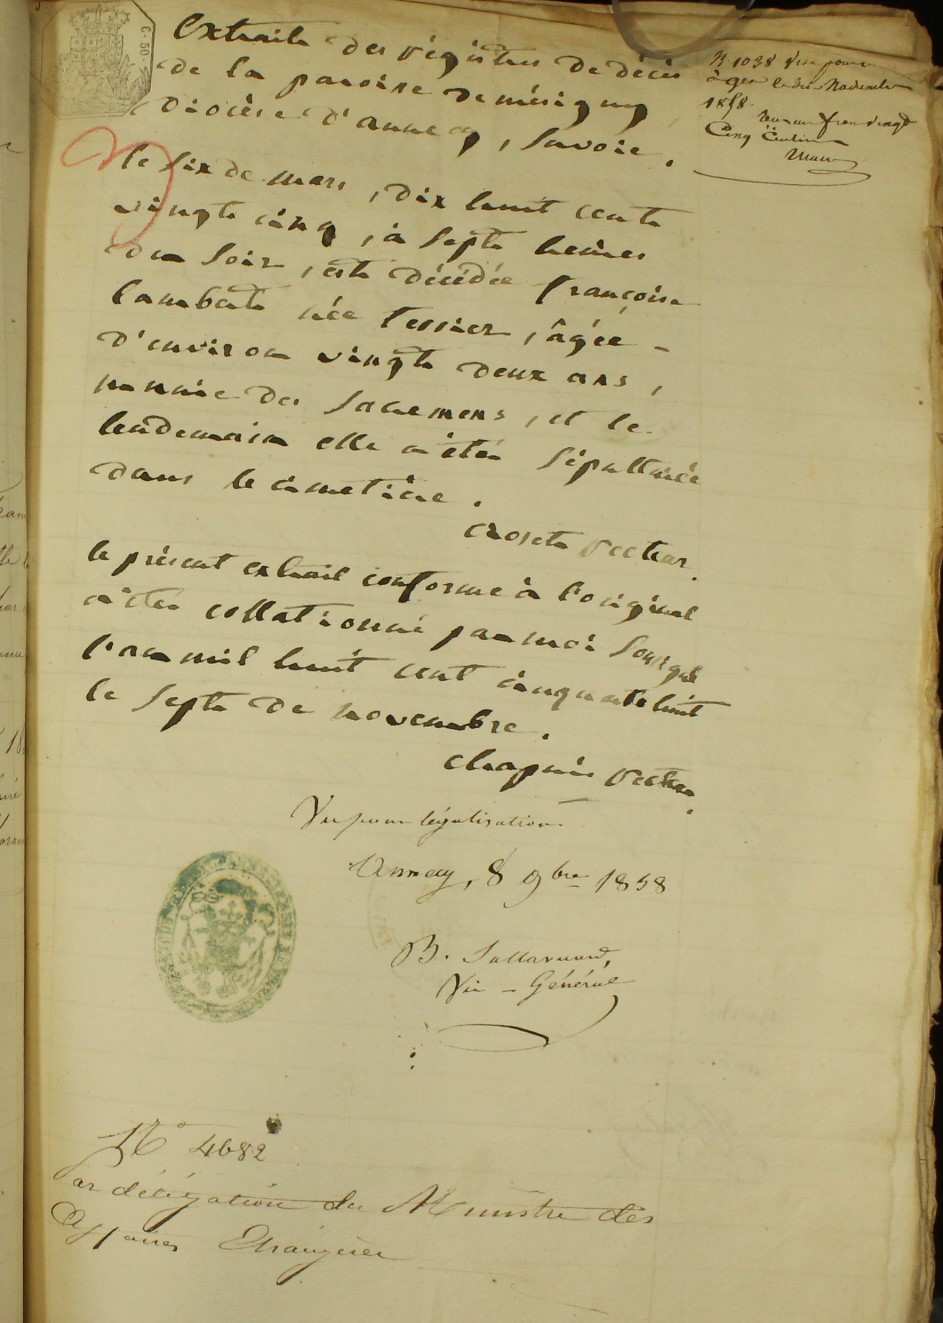 C. 50
Extrait des régistres de décès
de la paroisse de mésigny,
Diocèse d'annecy, Savoie.
N 1038 Vu pour
à Gex le dix Novembre
1858.
un franc vingt
Cinq Centimes
le six de mars, dix huit cents
vingts cinq, à septs heures
du soir, ests décédée françoise
Lambert née Tessier, âgée
d'environ vingts deux ans,
munnie des sacremens, et le
lendemain elle a étée sépulturée
dans le cimetière.
Crosets recteur.
le présent extrait conforme à l'original
a étés collationné par moi soussigné
l'an mil huit cent cinquante huit
le septs de novembre.
Chapuis recteur.
Vu pour légalisation
Annecy, 8 9bre 1858
B. Sallavuard,
Vic - Général
N° 4682
Par délégation du Ministre des
Affaires Etrangères